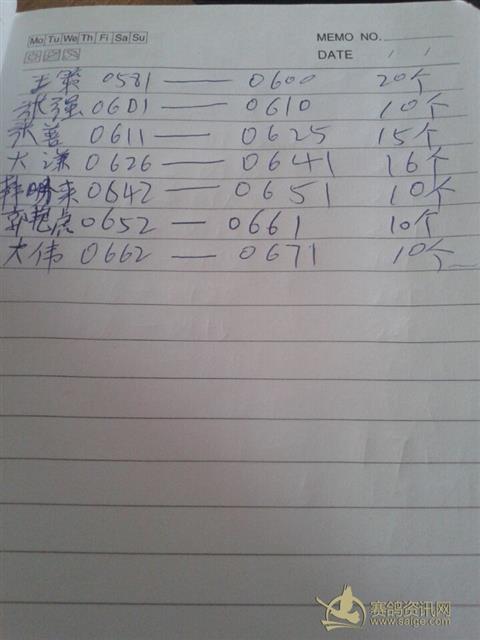 Mo Tu We Th Fr Sa Su
MEMO NO.
DATE / /
王 0581 — 0600 20个
张强 0601 — 0610 10个
张善 0611 — 0625 15个
大谦 0626 — 0641 16个
明来 0642 — 0651 10个
点 0652 — 0661 10个
大伟 0662 — 0671 10个
赛鸽资讯网
www.saige.com